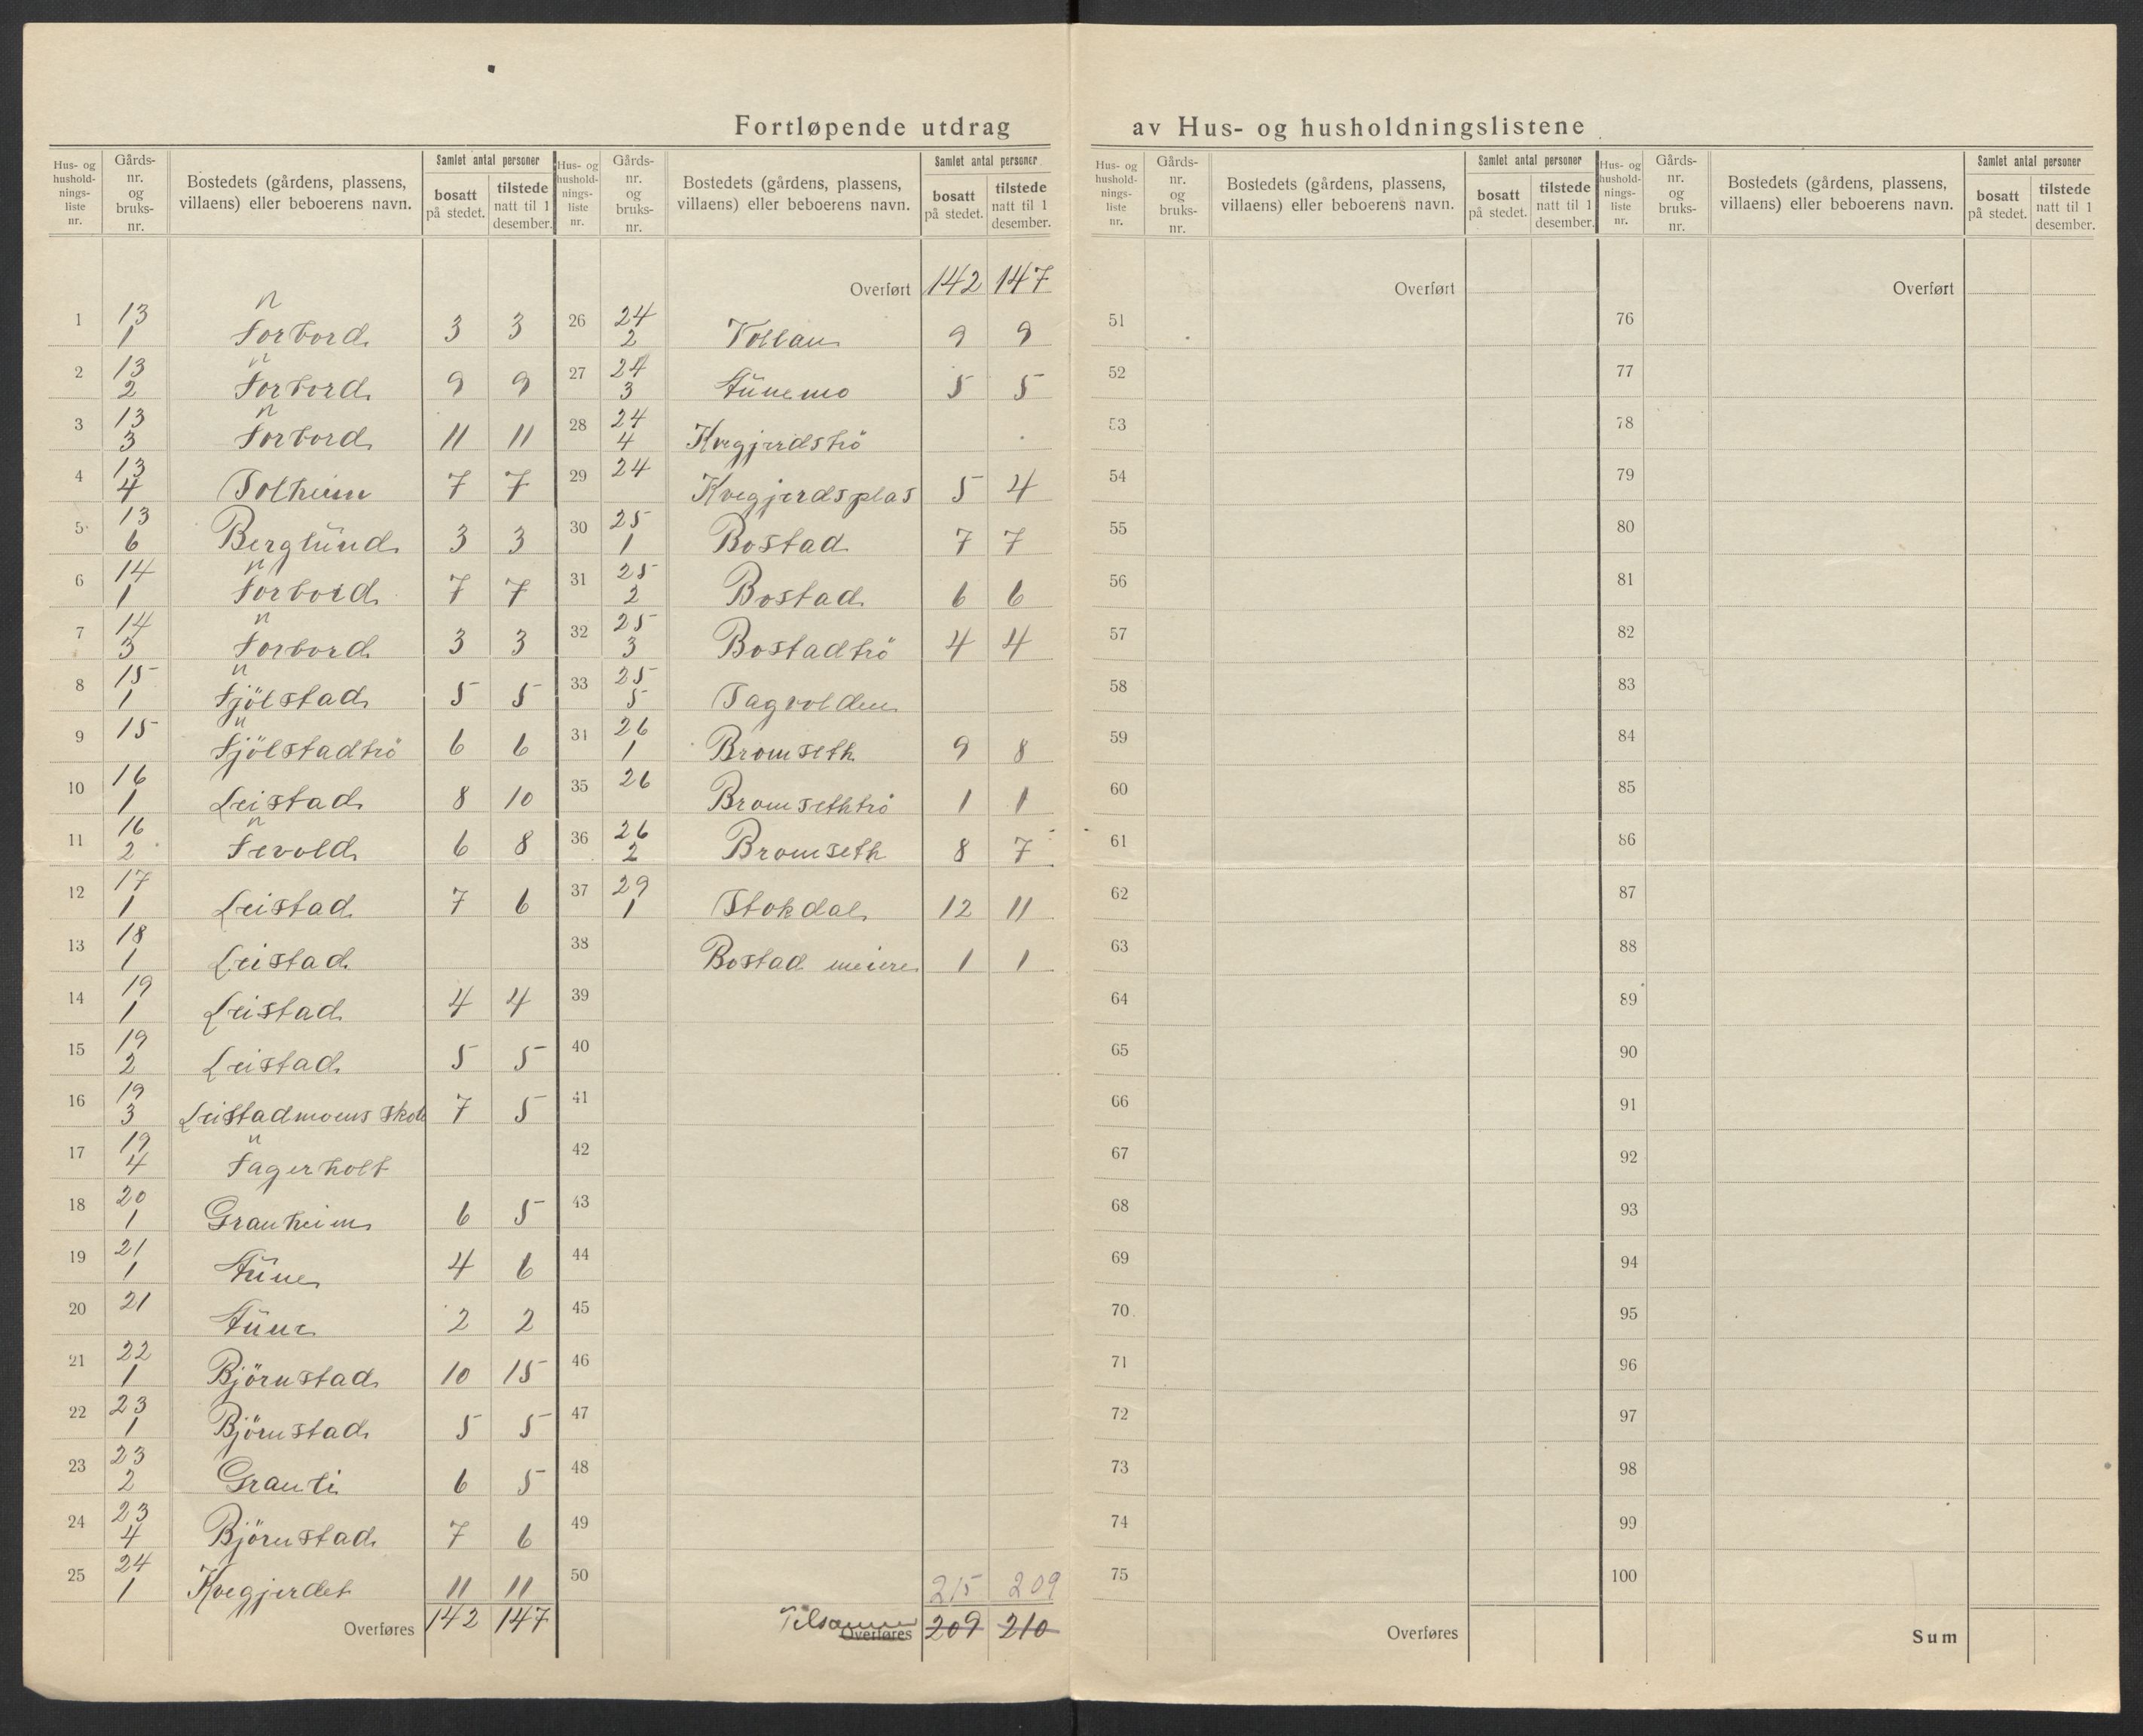 Fortløpende utdrag av Hus- og husholdningslistene
Hus- og hushold-nings-liste nr. Gårds-nr. og bruks-nr. Bostedets (gårdens, plassens, villaens) eller beboerens navn. Samlet antal personer bosatt på stedet. tilstede natt til 1 desember.
1 13 1 Forbord 3 3
2 13 2 Forbord 9 9
3 13 3 Forbord 11 11
4 13 4 Solheim 7 7
5 13 6 Berglund 3 3
6 14 1 Forbord 7 7
7 14 3 Forbord 3 3
8 15 1 Fjölstad 5 5
9 15 Fjölstadtrö 6 6
10 16 1 Leistad 8 10
11 16 2 Fevold 6 8
12 17 1 Leistad 7 6
13 18 1 Leistad
14 19 1 Leistad 4 4
15 19 2 Leistad 5 5
16 19 3 Leistadmoens skole 7 5
17 19 4 Fagerholt
18 20 1 Granheim 6 5
19 21 1 Hüne 4 6
20 21 Hüne 2 2
21 22 1 Björnstad 10 15
22 23 1 Björnstad 5 5
23 23 2 Granli 6 5
24 23 4 Björnstad 7 6
25 24 1 Kvegjerdet 11 11
Overføres 142 147
Hus- og hushold-nings-liste nr. Gårds-nr. og bruks-nr. Bostedets (gårdens, plassens, villaens) eller beboerens navn. Samlet antal personer bosatt på stedet. tilstede natt til 1 desember.
Overført 142 147
26 24 2 Vollan 9 9
27 24 3 Hünemo 5 5
28 24 4 Kvegjerdströ
29 24 Kvegjerdsplas 5 4
30 25 1 Bostad 7 7
31 25 2 Bostad 6 6
32 25 3 Bostadtrö 4 4
33 25 5 Dagvolden
34 26 1 Bromseth 9 8
35 26 Bromsethtrö 1 1
36 26 2 Bromseth 8 7
37 29 1 Stokdal 12 11
38 Bostad meiere 1 1
39
40
41
42
43
44
45
46
47
48
49
50 215 209
Tilsammen Overføres 209 210
Hus- og hushold-nings-liste nr. Gårds-nr. og bruks-nr. Bostedets (gårdens, plassens, villaens) eller beboerens navn. Samlet antal personer bosatt på stedet. tilstede natt til 1 desember.
Overført
51
52
53
54
55
56
57
58
59
60
61
62
63
64
65
66
67
68
69
70
71
72
73
74
75
Overføres
Hus- og hushold-nings-liste nr. Gårds-nr. og bruks-nr. Bostedets (gårdens, plassens, villaens) eller beboerens navn. Samlet antal personer bosatt på stedet. tilstede natt til 1 desember.
Overført
76
77
78
79
80
81
82
83
84
85
86
87
88
89
90
91
92
93
94
95
96
97
98
99
100
Sum